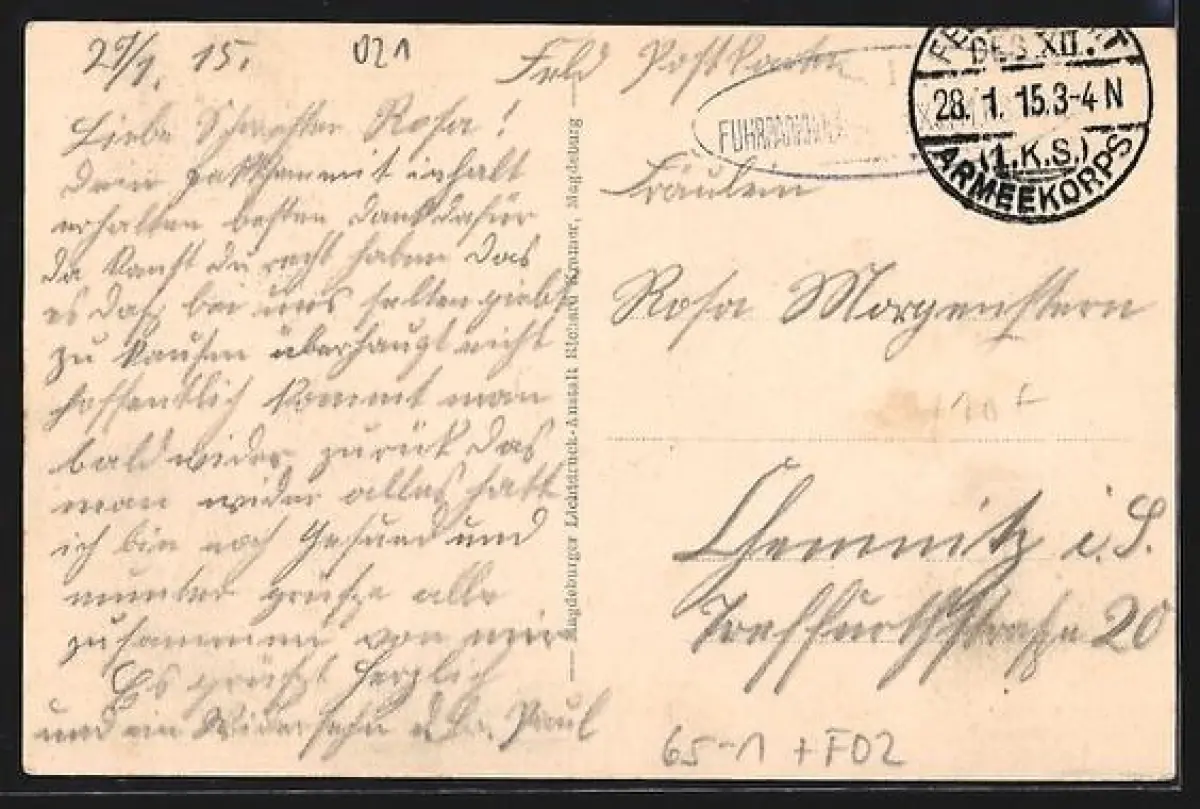 29/1. 15.
021
Liebe Schwester Rosa!
Dein mit inhalt
erhalten besten Dank dafür
da kanst du recht haben das
es das bei uns selten giebt
zu kaufen überhaupt nicht
hoffentlich kommt man
bald wider zurück das
man wider alles hatt
ich bin noch Gesund und
munter grüße alle
zusammen von mir
Es grüßt herzlich
und ein Widersehn d. Br. Paul
Magdeburger Lichtdruck-Anstalt Richard Kronner, Magdeburg
Feld Postkarte
DES XII.
28. 1. 15.3-4 N
(1.K.S.)
ARMEEKORPS
Fräulein
Rosa Morgenstern
Chemnitz i. S.
Treffurthstraße 20
65-1 +F02